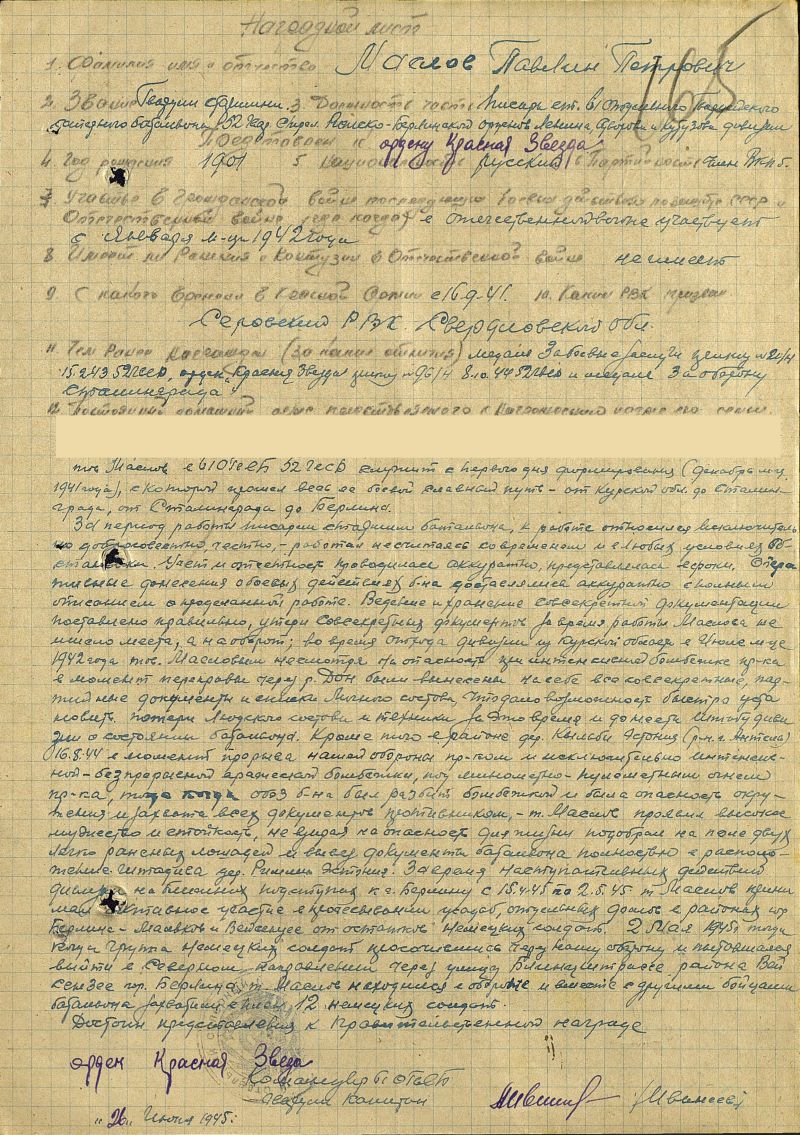 Наградной лист
165
1. Фамилия имя и отчество Маслов Павлин Петрович
2. Звание Гвардии старшина 3. Должность часть Писарь ст. 61 Отдельного Гвардейского
батальона 52 Гвар. Стрел. Рижско-Берлинской орденов Ленина Суворова и Кутузова дивизии
Представлен к ордену Красная Звезда
4. Год рождения 1901 5 национальность русский 6 Партийность член ВКП б.
7 Участие в Гражданской войне последующих боевых действиях по защите СССР и
Отечественной войне (где когда) в отечественной войне участвует
с января м-ца 1942 года
8. Имеет ли Ранения и Контузии в Отечественной войне не имеет
9. С какого времени в Красной Армии с 16.9.41. 10. Каким РВК призван
Серовский РВК Свердловской обл.
11 Чем Ранее Награжден (за какие отличия) медаль За боевые заслуги приказ № 20/н
15.2.43 52 гвсд, орден "Красная Звезда" приказ № 96/н 8.10.44 52 гвсд и медаль За оборону
Сталинграда"
12. Постоянный домашний адрес представляемого к Награждению и адрес его семьи.
тов Маслов в 61 52 гвсд служит с первого дня формирования (декабрь м-ц
1941 года), с которой прошел весь ее боевой славный путь - от Курской обл. до Сталин-
града, от Сталинграда до Берлина.
За период работы писарем старшим батальона, к работе относился исключитель
но добросовестно, честно, - работал не считаясь со временем и в любых условиях об-
становки. Учет и отчетность проводилась аккуратно, представлялась в сроки. Опера
тивные донесения о боевых действиях б-на доставлялись аккуратно с полным
описанием о проделанной работе. Ведение и хранение совсекретной документации
поставлено правильно, утери совсекретных документов за время работы Маслова не
имело места, а наоборот; во время отхода дивизии из Курской области в Июле м-це
1942 года тов. Масловым несмотря на опасность при интенсивной бомбежке пр-ка
в момент переправы через р. Дон были вынесены на себе все совсекретные, пар-
тийные документы и списки личного состава, что дало возможность быстро уста
новить потери людского состава и техники за это время и донести штабу диви
зии о состоянии батальона. Кроме того в районе дер. Эстония
16.8.44 в момент прорыва нашей обороны пр-ком и исключительно интенсив-
ной - безпрерывной вражеской бомбежки, под минометно-пулеметным огнем
пр-ка, тогда когда обоз б-на был разбит бомбежкой и была опасность окру-
жения и захвата всех документов противником, - т. Маслов проявил высокое
мужество и стойкость, не взирая на опасность для жизни подобрал на поле двух
легко раненых лошадей и вывез документы батальона полностью в располо-
жение дер. Эстония. За время наступательных действий
дивизии на ближних подступах к г. Берлину с 15.4.45 по 2.5.45 т. Маслов прини
мал активное участие в прочесывании усадьб, отдельных домов в районах гор
Берлина - и Вейсензее от остатков немецких солдат. 2 Мая 1945г тогда
когда группа немецких солдат просочившись через нашу оборону и пытавшаяся
выйти в северном направлении через улицу района Вай
сензее гор. Берлина, т. Маслов находился в обороне и вместе с другими бойцами
батальона захватили в плен 12 немецких солдат.
Достоин представления к Правительственной награде
орден Красная Звезда
Командир 61
Гвардии Капитан
"26" Июня 1945г.